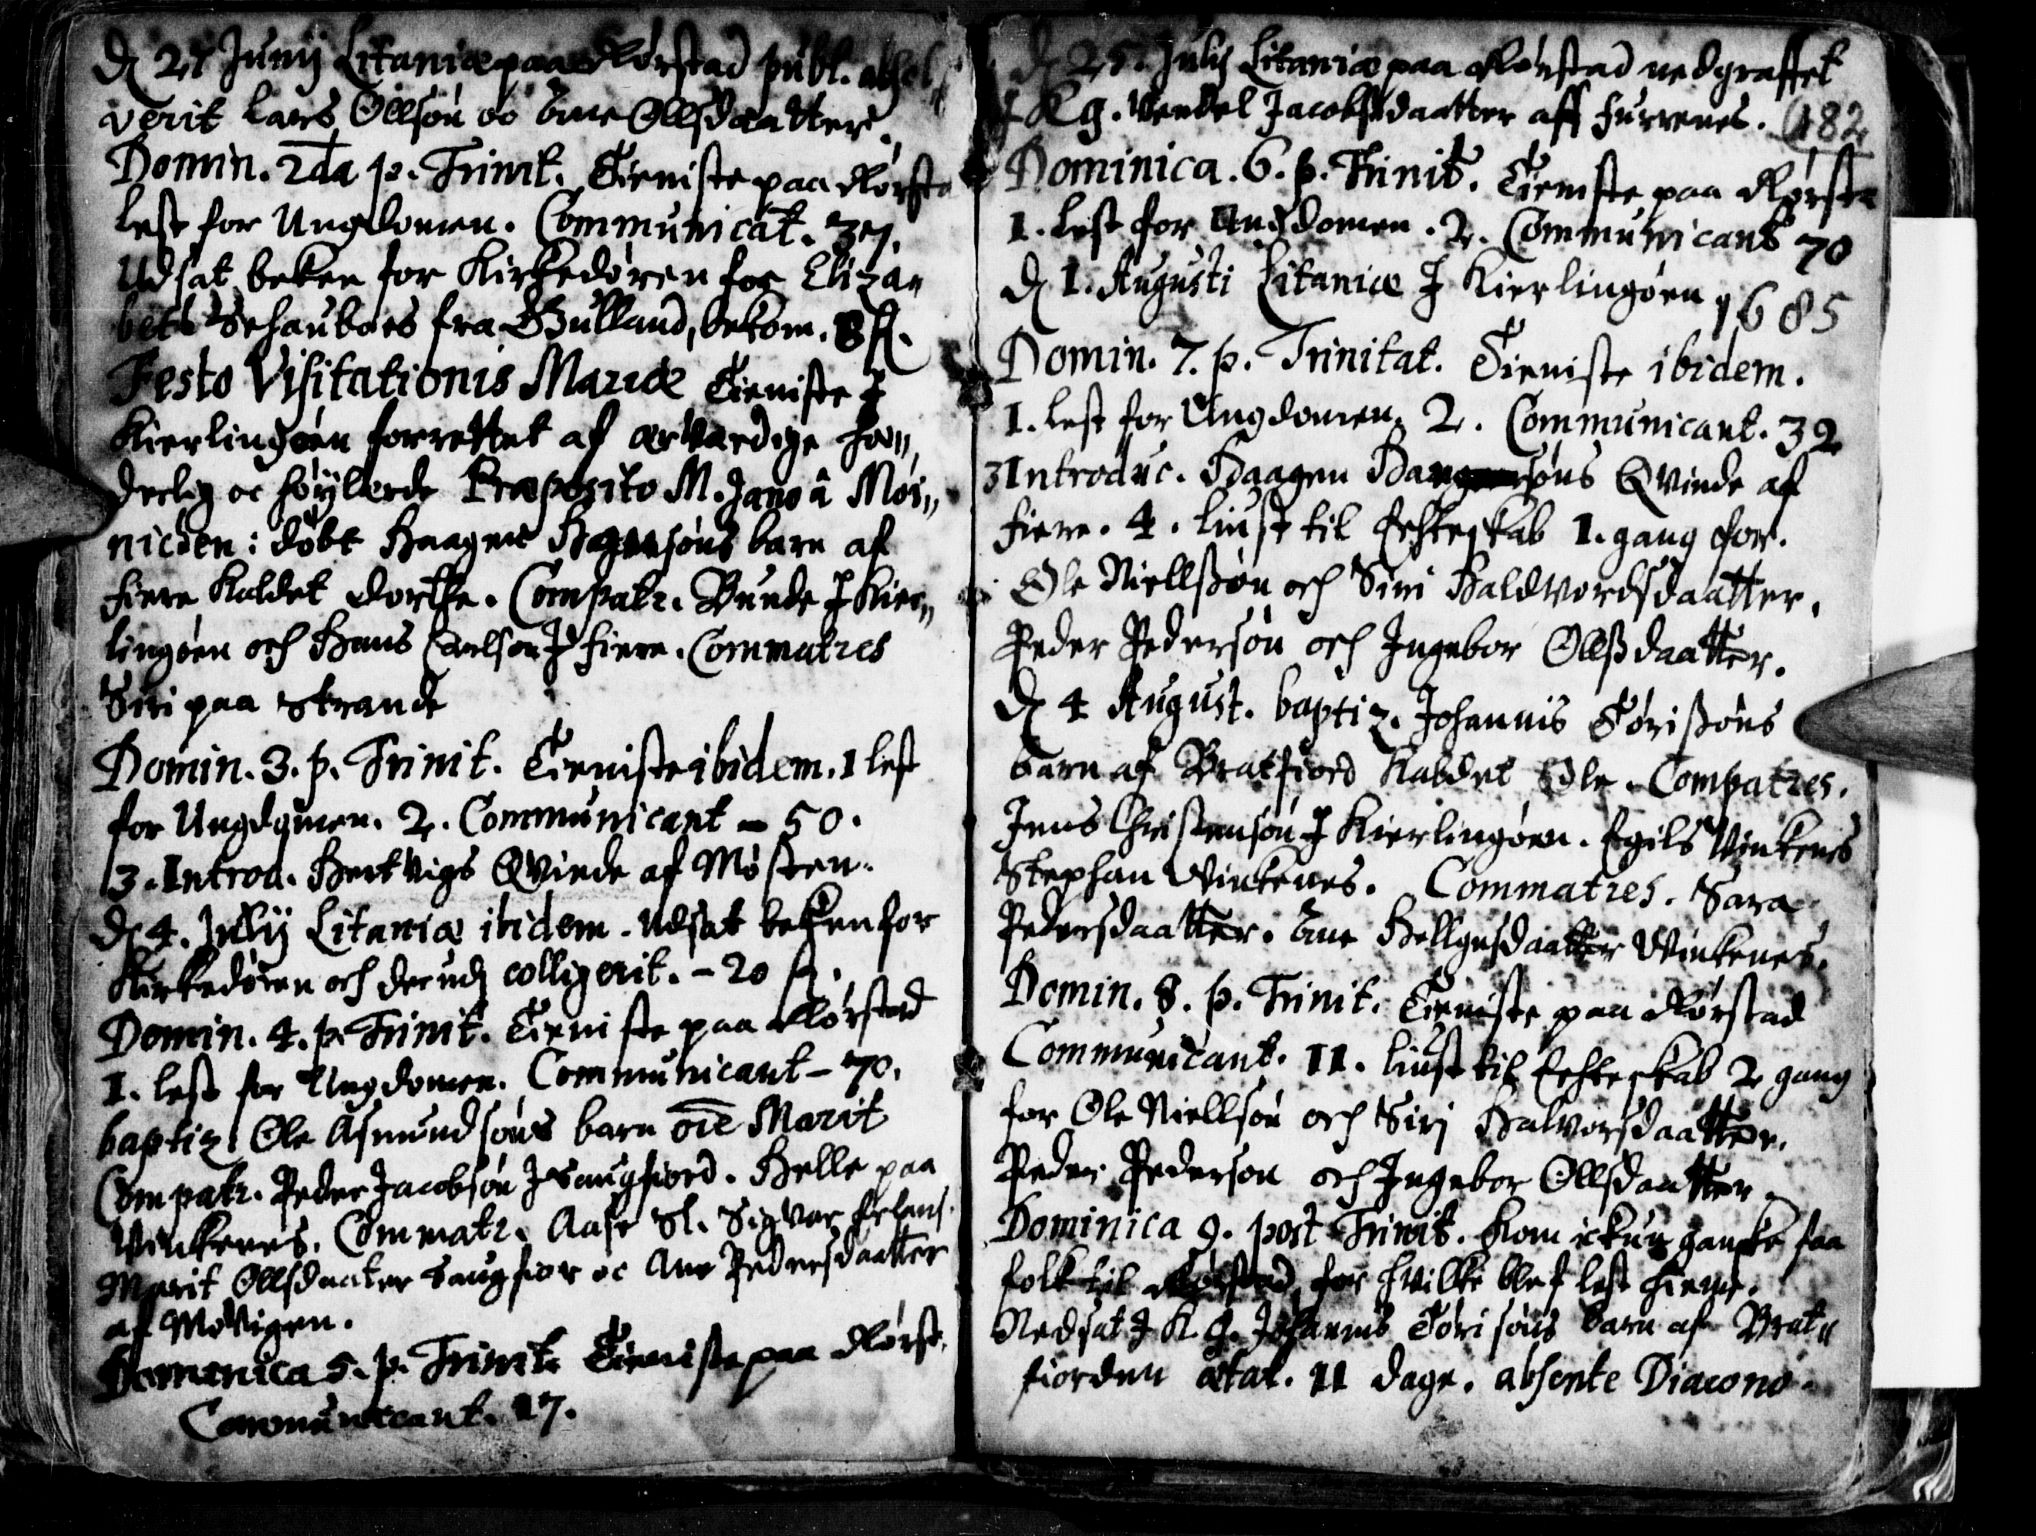 D 27 Junij Litaniæ paa Rørstad publ. absol,,
verit Lars Ollsøn oc Ane Ollsdaatter.
Domin. 2da p. Trinit. Tieniste paa Rørsta
lest for Ungdomen. Communicat. 37.
Udsat beken for Kirkedøren for Eliza,,
beth Schaubois fra Gulland, bekom. 8 ß.
Festo Visitationis Mariæ Tieniste J
Kierlingøen forrettet af ærværdige hæn,,
derlig oc høylerde Præposito M. Jano á Møi,,
nichen: døbt Haagen Hagensøns barn af
Fiere kaldet Dorthe. Compatr. Bunde J Kier,,
lingøen och Hans Carlson J Fiere. Commatres
Siri paa Strande
Domin. 3. p. Trinit. Tieniste ibidem. 1 lest
for Ungdomen. 2. Communicant - 50.
3. Introd. Hertvigs Qvinde af Møsten.
D 4. Julij Litaniæ ibidem. Udsat beken for
Kirkedøren och derudj colligerit. - 20 ß.
Domin. 4. p. Trinit. Tieniste paa Rørstad
1. lest for Ungdomen. Communicant - 70.
baptiz. Ole Asmundsøns barn Marit
Compatr. Peder Jacobsøn J Laugfiord. Helle paa
Vinkenes. Commatr. Aase Sl. Sigvar Erlans.
Marit Ollsdaater Laugfior oc Ane Pedersdaatter
af Movigen.
Domenica 5. p. Trinit. Tieniste paa Rørst.
Communicant. 17.
D 25. Julij Litaniæ paa Rørstad nedgraffet
J K g. Vendel Jacobsdaatter aff Furrenes. 182
Dominica. 6. p. Trinit. Tieniste paa Rørsta
1. lest for Ungdomen. 2. Communicant 70
D 1. Augusti Litaniæ J Kierlingøen 1685
Domin. 7. p. Trinitat. Tieniste ibidem.
1. lest for Ungdomen. 2. Communicant. 32
3 Introduc. Haagen Hansøns Qvinde af
Fiere. 4. liust til Echteskab 1. gang for.
Ole Niellsøn och Siri Haldvordsdaatter.
Peder Pedersøn och Ingebor Ollsdaatter.
D 4 August. baptiz. Johannis Tørisøns
barn af Bratfiord kaldet Ole. Compatres.
Jens Christensøn J Kierlingøen. Egils Vinkenes
Stephan Vinkenes. Commatres. Sara
Pedersdaatter. Ane Hellgesdaatter Vinkenes.
Domin. 8. p. Trinit. Tieniste paa Rørstad
Communicant. 11. liust til Echteskab 2 gang
for Ole Niellsøn och Sirj Halvorsdaatter.
Peder Pederson och Ingebor Ollsdaatter.
Dominica 9. post Trinit. kom ickun ganske faa
folk til Rørstad, for hvilke blef lest hieme.
Nedsat J K. g. Johannis Tørisøns barn af Brat,,
fiorden ætat. 11 dage. absente Diacono.